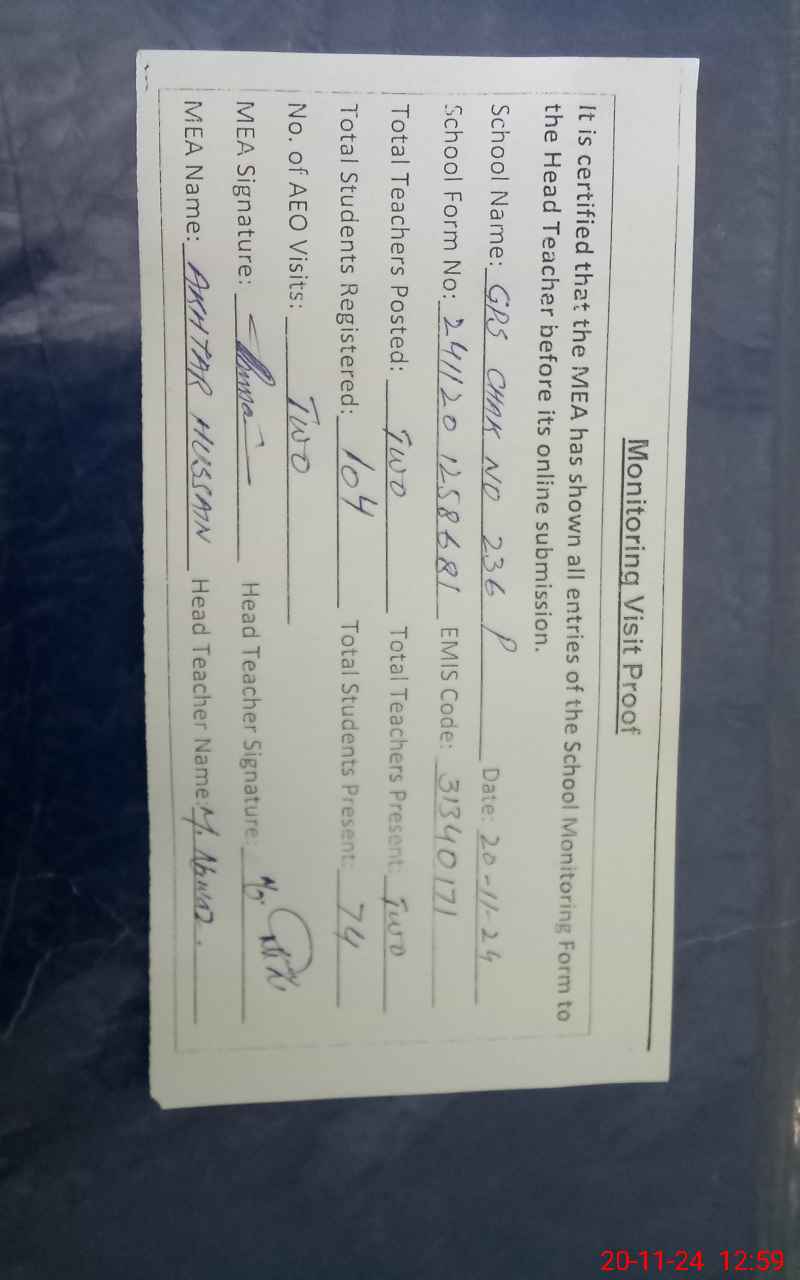 Monitoring Visit Proof
It is certified that the MEA has shown all entries of the School Monitoring Form to
the Head Teacher before its online submission.
School Name: GPS CHAK NO 236 P Date: 20-11-24
School Form No: 241120 1258681 EMIS Code: 31340171
Total Teachers Posted: Two Total Teachers Present: Two
Total Students Registered: 104 Total Students Present: 74
No. of AEO Visits: Two
MEA Signature: Head Teacher Signature:
MEA Name: AKHTAR HUSSAIN Head Teacher Name: M. Nawaz.
20-11-24 12:59